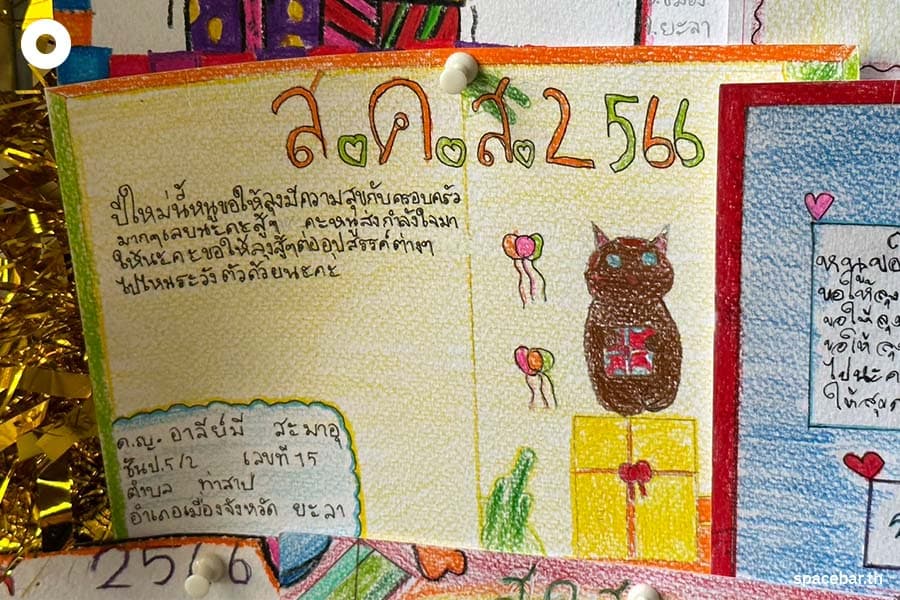 ส.ค.ส.2566
ปีใหม่นี้หนูขอให้ลุงมีความสุขกับครอบครัว
มากๆเลยนะคะสู้ๆ คะหนูสงกำลังใจมา
ให้นะคะขอให้ลุงสู้ๆต่ออุปสรรค์ต่างๆ
ไปไหนระวังตัวด้วยนะคะ
ด.ญ. อาลีย์มี สะมาอุ
ชั้นป.5/2 เลขที่ 15
ตำบล ท่าสาป
อำเภอเมืองจังหวัด ยะลา
ยะลา
หนูขอ
ขอให้ลุง
ขอให้ลุง
ขอให้ลุง
ไปนะค
2566
spacebar.th